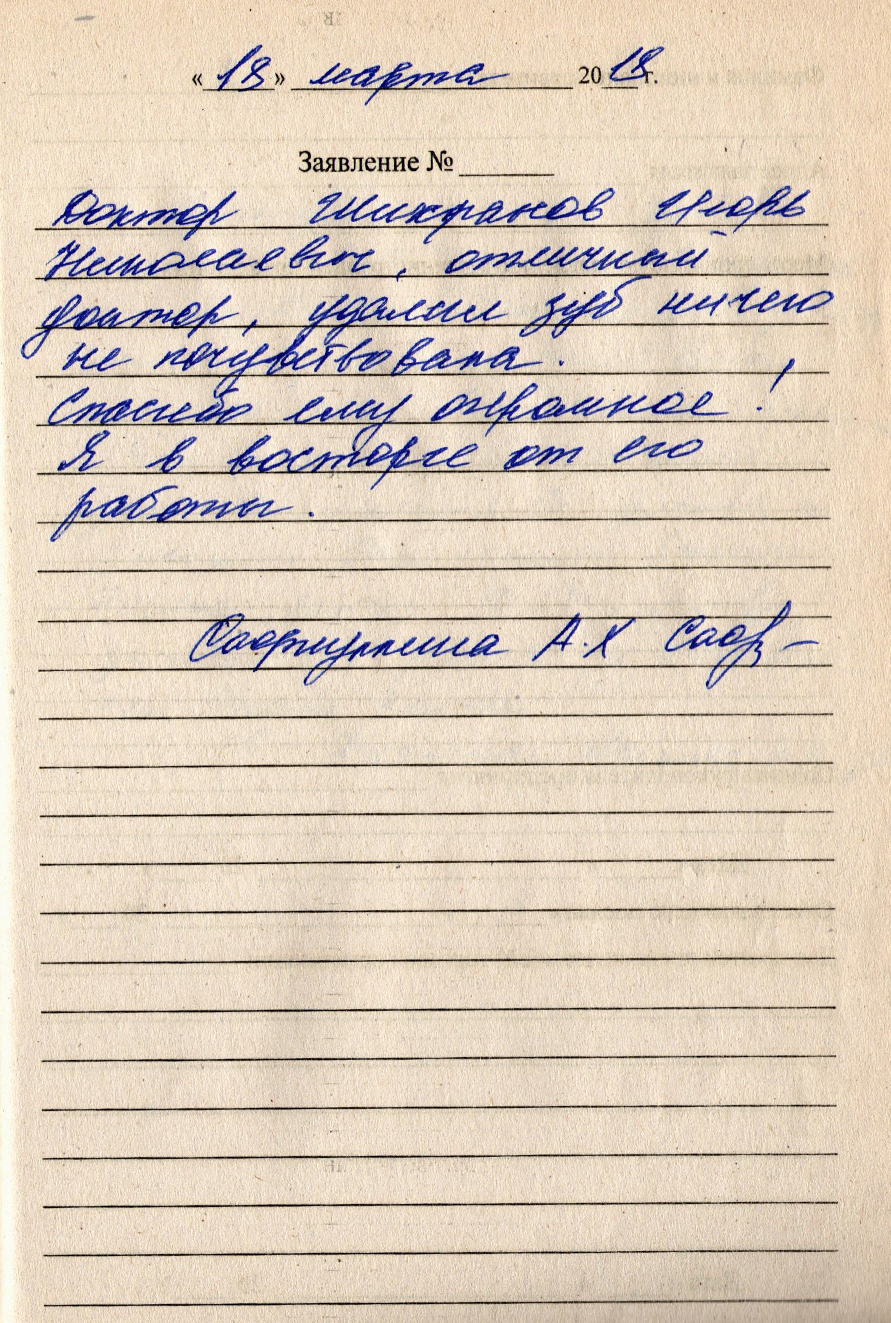 «18» марта 2018 г.
Заявление №
Доктор Шикранов Игорь
Николаевич, отличный
доктор, удалил зуб ничего
не почувствовала.
Спасибо ему огромное!
Я в восторге от его
работы.
Сафиуллина А.Х